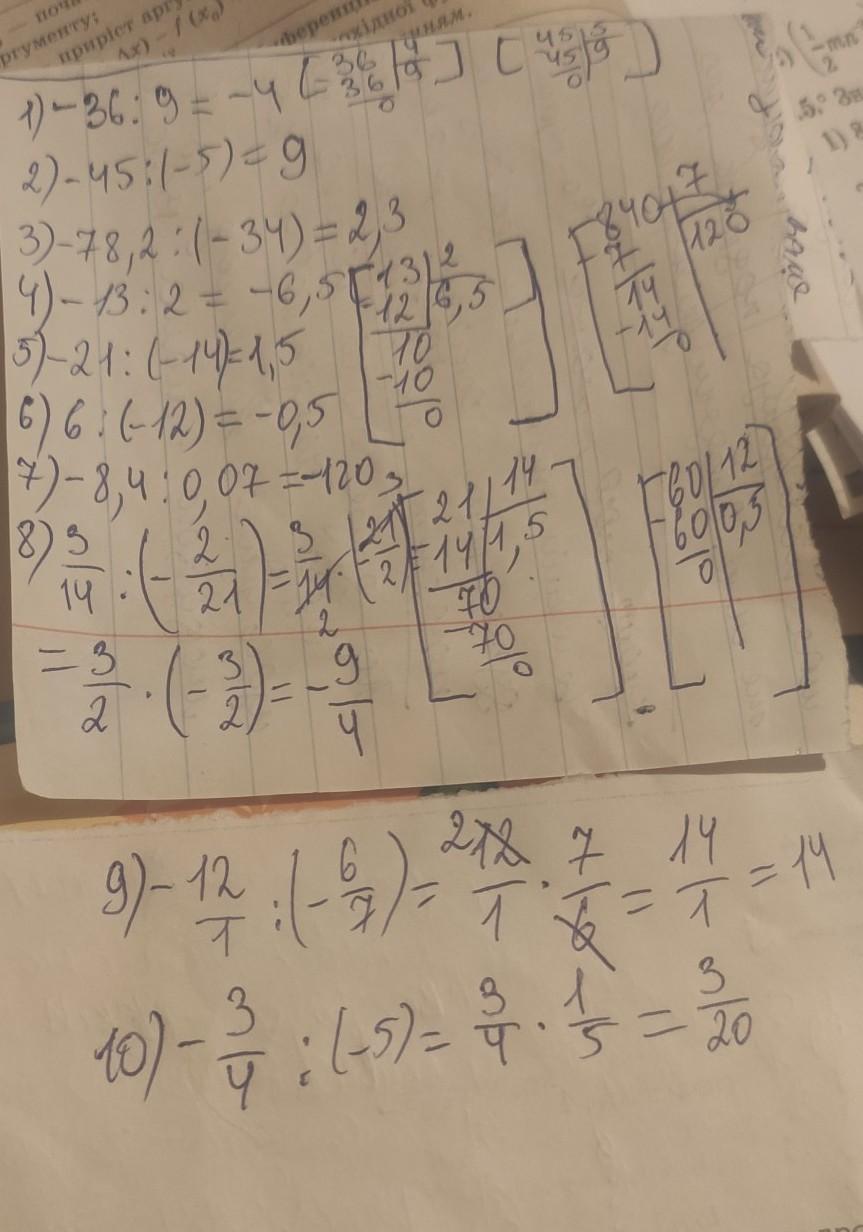 — поча
аргументу;
приріст аргу
Δx) – f (x₀)
ференці
охідної ф
нням.
1) -36 : 9 = -4 [36 | 4
-36 | 9
0]
[45 | 5
45 | 9
0]
2) -45 : (-5) = 9
3) -78,2 : (-34) = 2,3
4) -13 : 2 = -6,5 [13 | 2
-12 | 6,5
10
-10
0]
[840 | 7
-7 | 120
14
-14
0]
5) -21 : (-14) = 1,5
6) 6 : (-12) = -0,5
7) -8,4 : 0,07 = -120
8) 3/14 : (-2/21) = 3/14 · (-21/2) =
2
3
[21 | 14
14 | 1,5
70
-70
0]
[60 | 12
-60 | 0,5
0]
= 3/2 · (-3/2) = -9/4
9) -12/1 : (-6/7) = 2 12/1 · 7/6 = 14/1 = 14
10) -3/4 : (-5) = 3/4 · 1/5 = 3/20
(1/2 mn
5.° Зн
1) 8